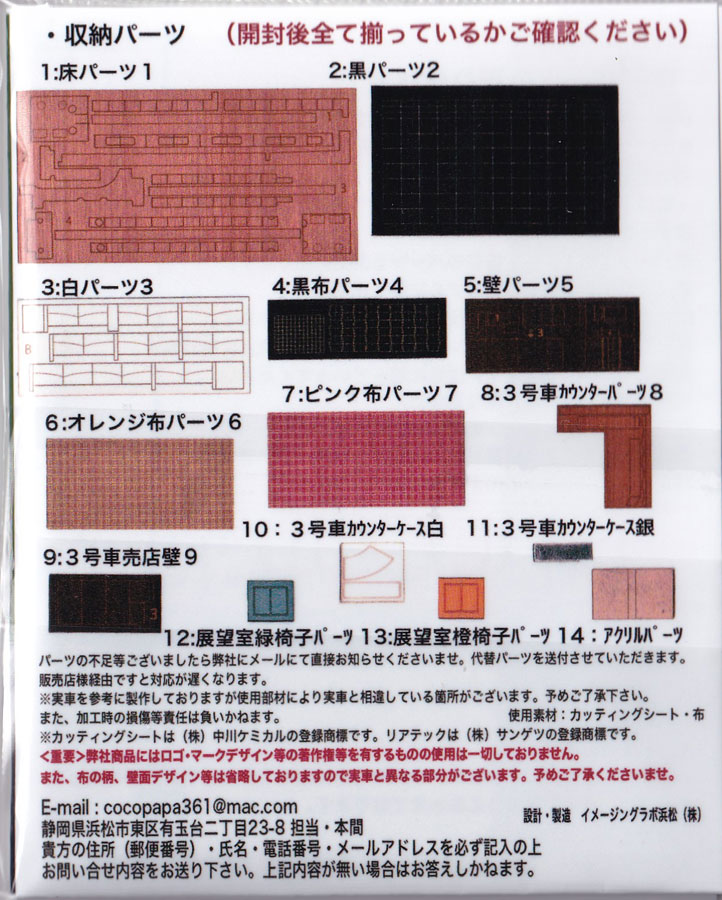 ・収納パーツ （開封後全て揃っているかご確認ください）
1:床パーツ1 2:黒パーツ2
3:白パーツ3 4:黒布パーツ4 5:壁パーツ5
7:ピンク布パーツ7 8:３号車ｶｳﾝﾀｰﾊﾟｰﾂ８
6:オレンジ布パーツ6
10：３号車ｶｳﾝﾀｰケース白 11:３号車ｶｳﾝﾀｰケース銀
9:３号車売店壁９
12:展望室緑椅子ﾊﾟｰﾂ 13:展望室橙椅子ﾊﾟｰﾂ 14：ｱｸﾘﾙﾊﾟｰﾂ
パーツの不足等ございましたら弊社にメールにて直接お知らせくださいませ。代替パーツを送付させていただきます。
販売店様経由ですと対応が遅くなります。
※実車を参考に製作しておりますが使用部材により実車と相違している箇所がございます。予めご了承下さい。
また、加工時の損傷等責任は負いかねます。 使用素材：カッティングシート・布
※カッティングシートは（株）中川ケミカルの登録商標です。リアテックは（株）サンゲツの登録商標です。
＜重要＞弊社商品にはロゴ・マークデザイン等の著作権等を有するものの使用は一切しておりません。
また、布の柄、壁面デザイン等は省略しておりますので実車と異なる部分がございます。予めご了承くださいませ。
E-mail : cocopapa361@mac.com
設計・製造 イメージングラボ浜松（株）
静岡県浜松市東区有玉台二丁目23-8 担当・本間
貴方の住所（郵便番号）・氏名・電話番号・メールアドレスを必ず記入の上
お問い合せ内容をお送り下さい。上記内容が無い場合はお答えしかねます。